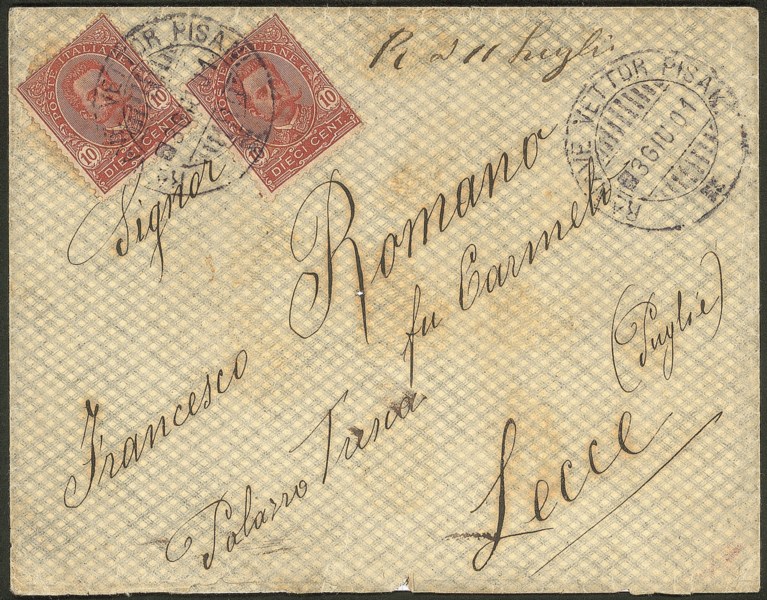 POSTE ITALIANE
10
10
DIECI CENT.
POSTE ITALIANE
10
10
DIECI CENT.
VETTOR PISANI
R 2 11 luglio
VETTOR PISANI
3 GIU 01
Signor
Romano
Francesco fu Carmelo
Palazzo Tresca
Lecce
(Puglie)